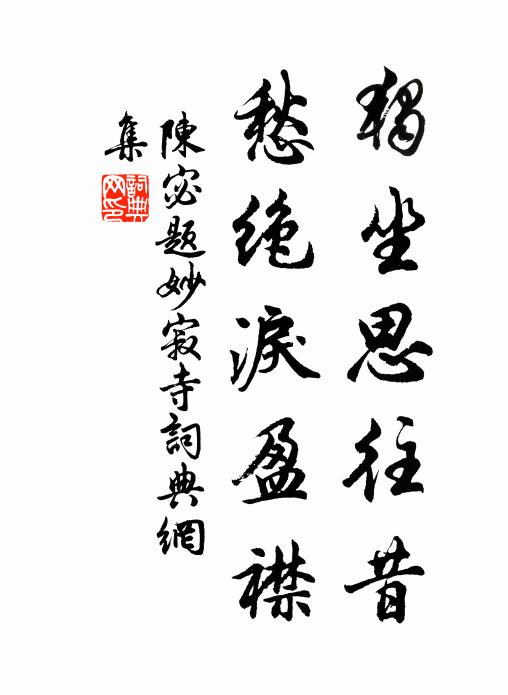 獨坐思往昔
愁絕淚盈襟
陳宓題妙寂寺詞典網
集
詞典
网印